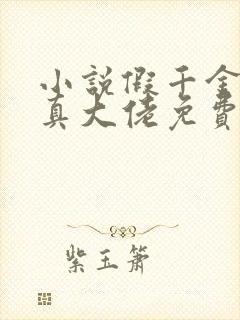 小說假千金
真大佬免費
紫玉簫